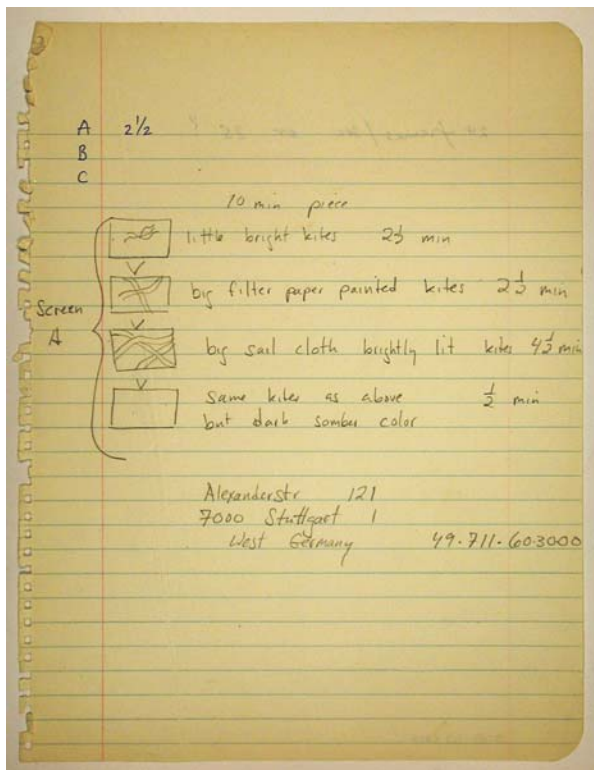 A 2½
B
C
10 min piece
little bright kites 2½ min
big filter paper painted kites 2½ min
Screen
A
big sail cloth brightly lit kites 4½ min
Same kites as above ½ min
but dark somber color
Alexanderstr 121
7000 Stuttgart 1
West Germany 49-711-60-3000